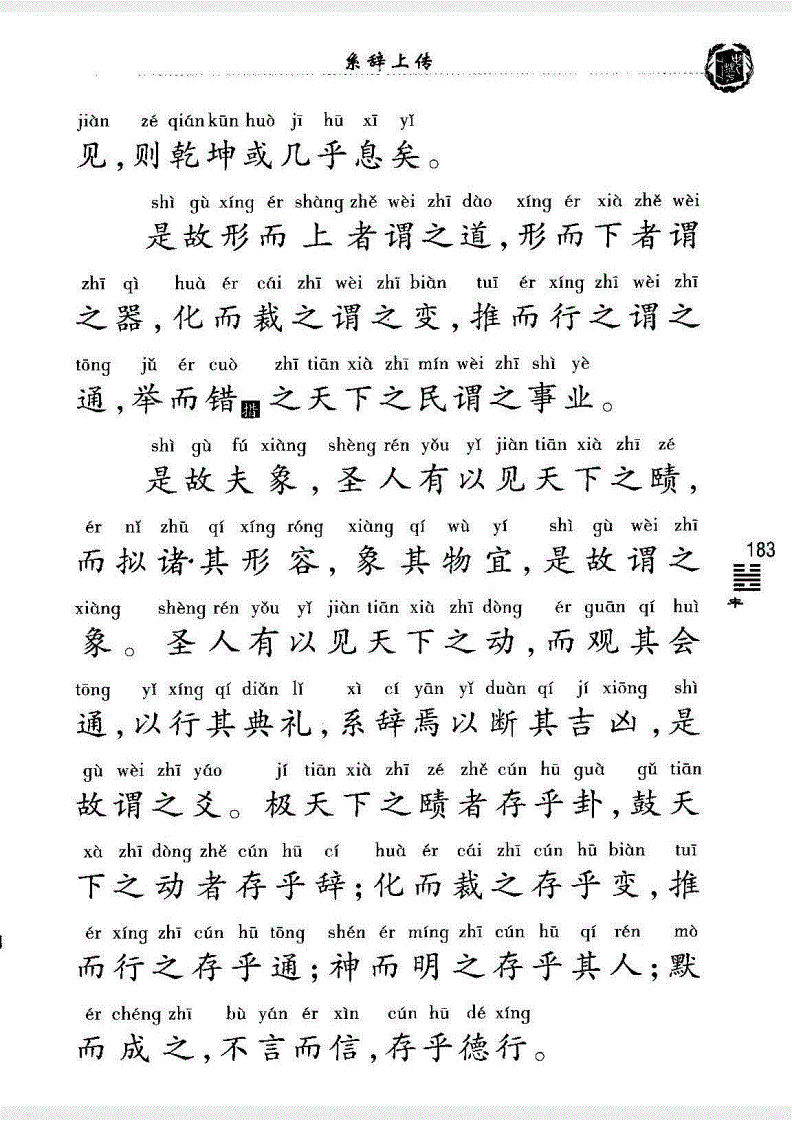 系辞上传
jiàn zé qián kūn huò jī hū xī yǐ
见，则乾坤或几乎息矣。
shì gù xíng ér shàng zhě wèi zhī dào xíng ér xià zhě wèi
是故形而上者谓之道，形而下者谓
zhī qì huà ér cái zhī wèi zhī biàn tuī ér xíng zhī wèi zhī
之器，化而裁之谓之变，推而行之谓之
tōng jǔ ér cuò zhī tiān xià zhī mín wèi zhī shì yè
通，举而错措之天下之民谓之事业。
shì gù fú xiàng shèng rén yǒu yǐ jiàn tiān xià zhī zé
是故夫象，圣人有以见天下之赜，
ér nǐ zhū qí xíng róng xiàng qí wù yí shì gù wèi zhī
而拟诸其形容，象其物宜，是故谓之
183
xiàng shèng rén yǒu yǐ jiàn tiān xià zhī dòng ér guān qí huì
象。圣人有以见天下之动，而观其会
tōng yǐ xíng qí diǎn lǐ xì cí yān yǐ duàn qí jí xiōng shì
通，以行其典礼，系辞焉以断其吉凶，是
gù wèi zhī yáo jí tiān xià zhī zé zhě cún hū guà gǔ tiān
故谓之爻。极天下之赜者存乎卦，鼓天
xà zhī dòng zhě cún hū cí huà ér cái zhī cún hū biàn tuī
下之动者存乎辞；化而裁之存乎变，推
ér xíng zhī cún hū tōng shén ér míng zhī cún hū qí rén mò
而行之存乎通；神而明之存乎其人；默
ér chéng zhī bù yán ér xìn cún hū dé xíng
而成之，不言而信，存乎德行。